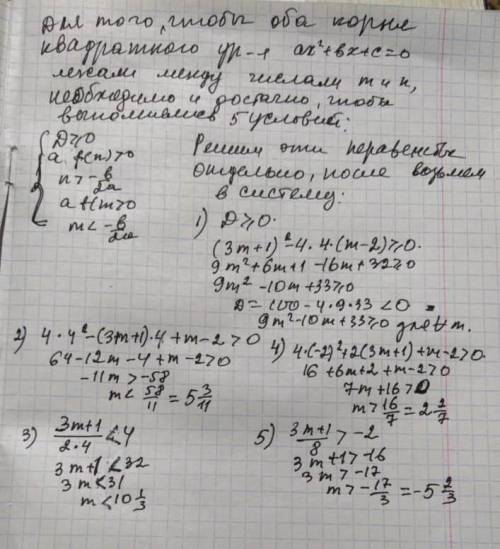 Для того, чтобы оба корня
квадратного ур-я ax²+bx+c=0
лежали между числами m и n,
необходимо и достачно, чтобы
выполнялись 5 условий:
D≥0
a·f(n)>0
n>-b/2a
a f(m>0
m<-b/2a
Решим эти неравенства
отдельно, после возьмем
в систему:
1) D≥0.
(3m+1)²-4·4·(m-2)≥0.
9m²+6m+1-16m+32≥0
9m²-10m+33≥0
D=100-4·9·33<0
9m²-10m+33≥0 для ∀ m.
2) 4·4²-(3m+1)·4+m-2>0
64-12m-4+m-2>0
-11m>-58
m<58/11=5 3/11
3) (3m+1)/(2·4)<4
3m+1<32
3m<31
m<10 1/3
4) 4·(-2)²+2(3m+1)+m-2>0.
16+6m+2+m-2>0
7m+16>0
m>16/7=2 2/7
5) (3m+1)/8>-2
3m+1>-16
3m>-17
m>-17/3=-5 2/3